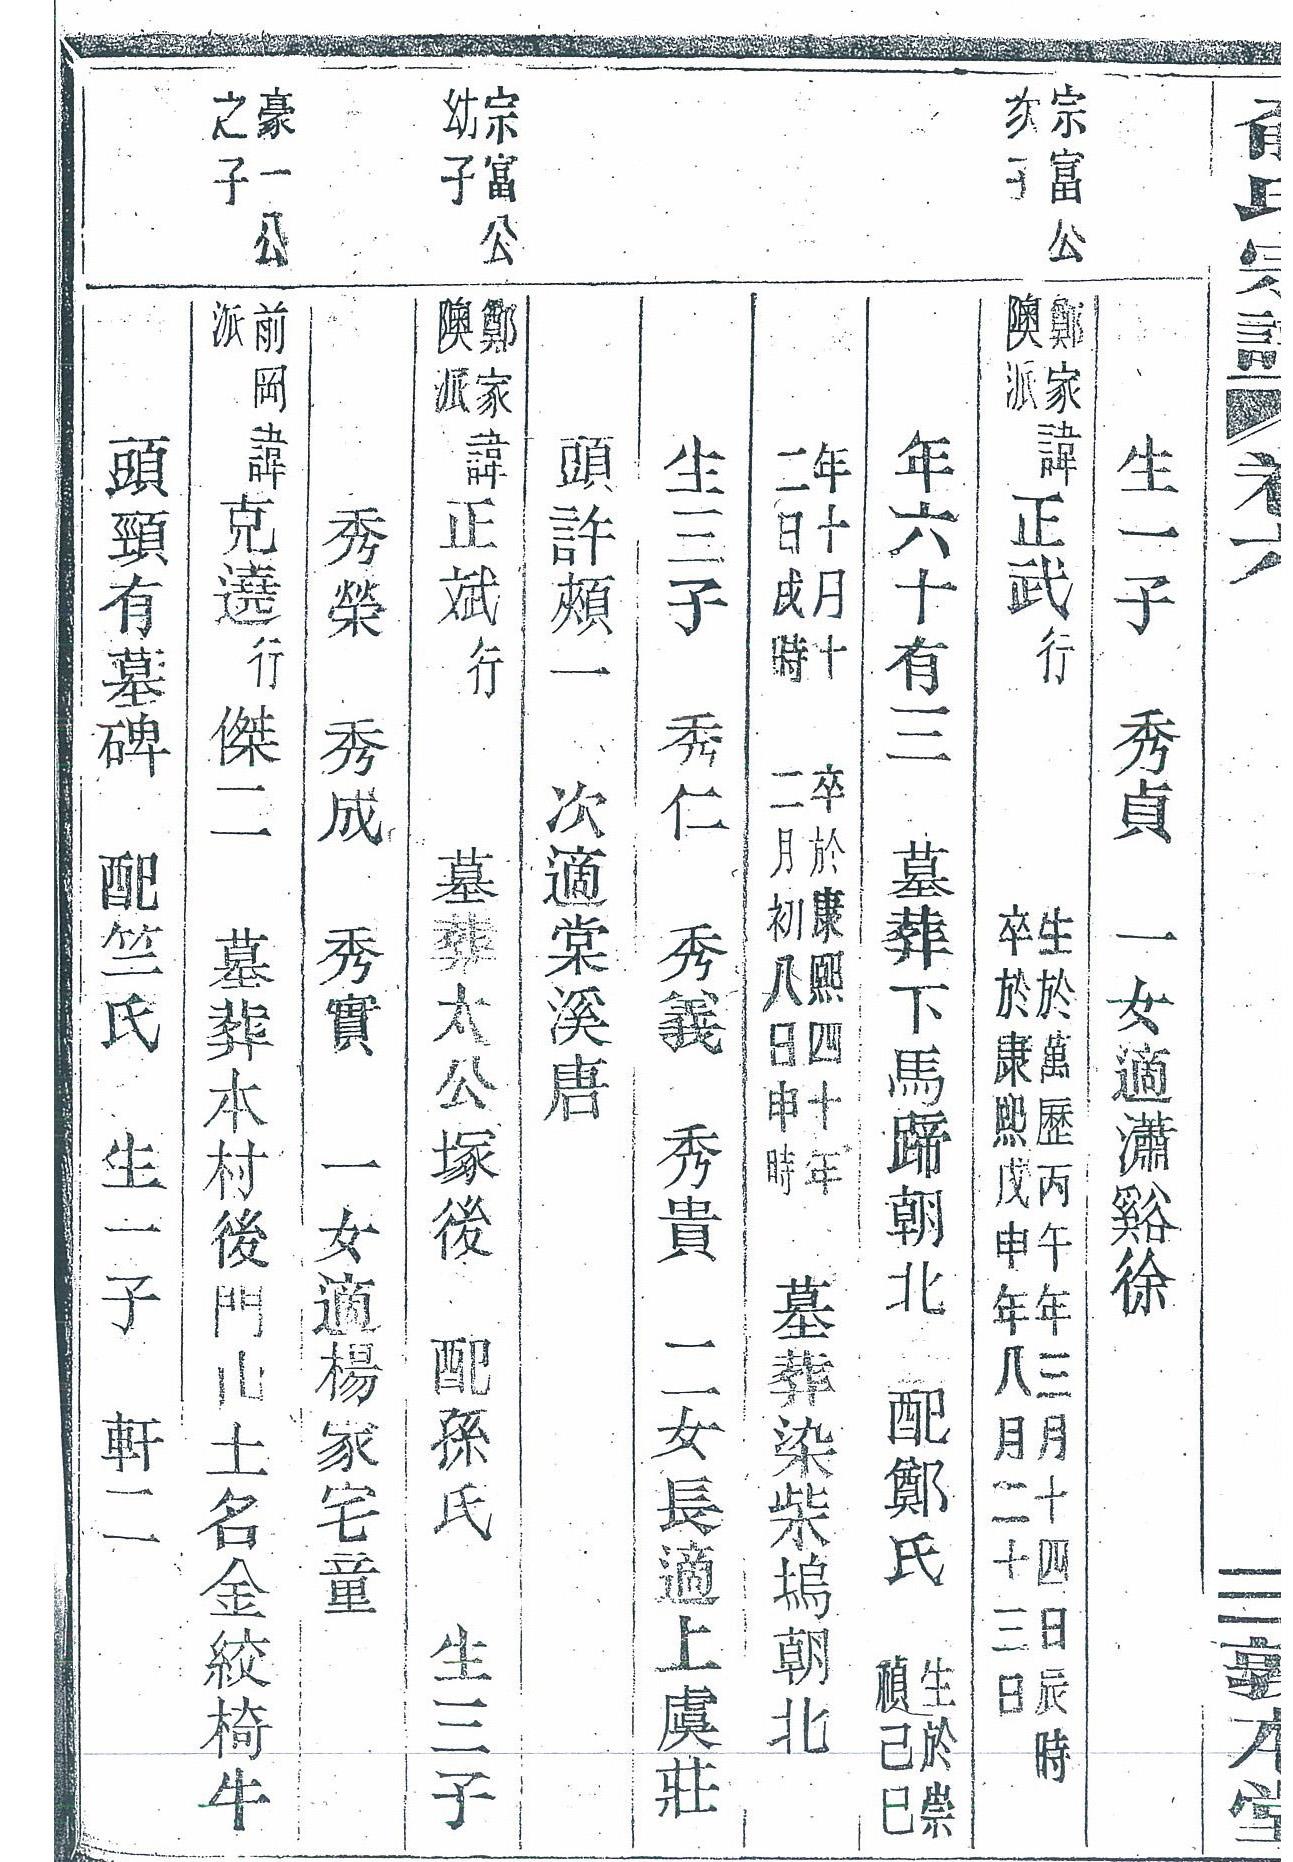 俞氏宗譜 卷六
三 敦本堂
生一子　秀貞　一女適瀟谿徐
宗富公
次子
鄭家
隩派
諱正武行
生於萬歷丙午年三月十四日辰時
卒於康熙戊申年八月二十三日
年六十有三　墓葬下馬蹄朝北　配鄭氏
生於崇
禎己巳
年十月十
二日戌時
卒於康熙四十年
二月初八日申時
墓葬染柴塢朝北
生三子　秀仁　秀義　秀貴　二女長適上虞莊
頭許頫一　次適棠溪唐
宗富公
幼子
鄭家
隩派
諱正斌行　墓葬太公塚後　配孫氏　生三子
秀榮　秀成　秀實　一女適楊家宅童
豪一公
之子
前岡
派
諱克遶行傑二　墓葬本村後門山土名金絞椅牛
頭頸有墓碑　配竺氏　生一子　軒二